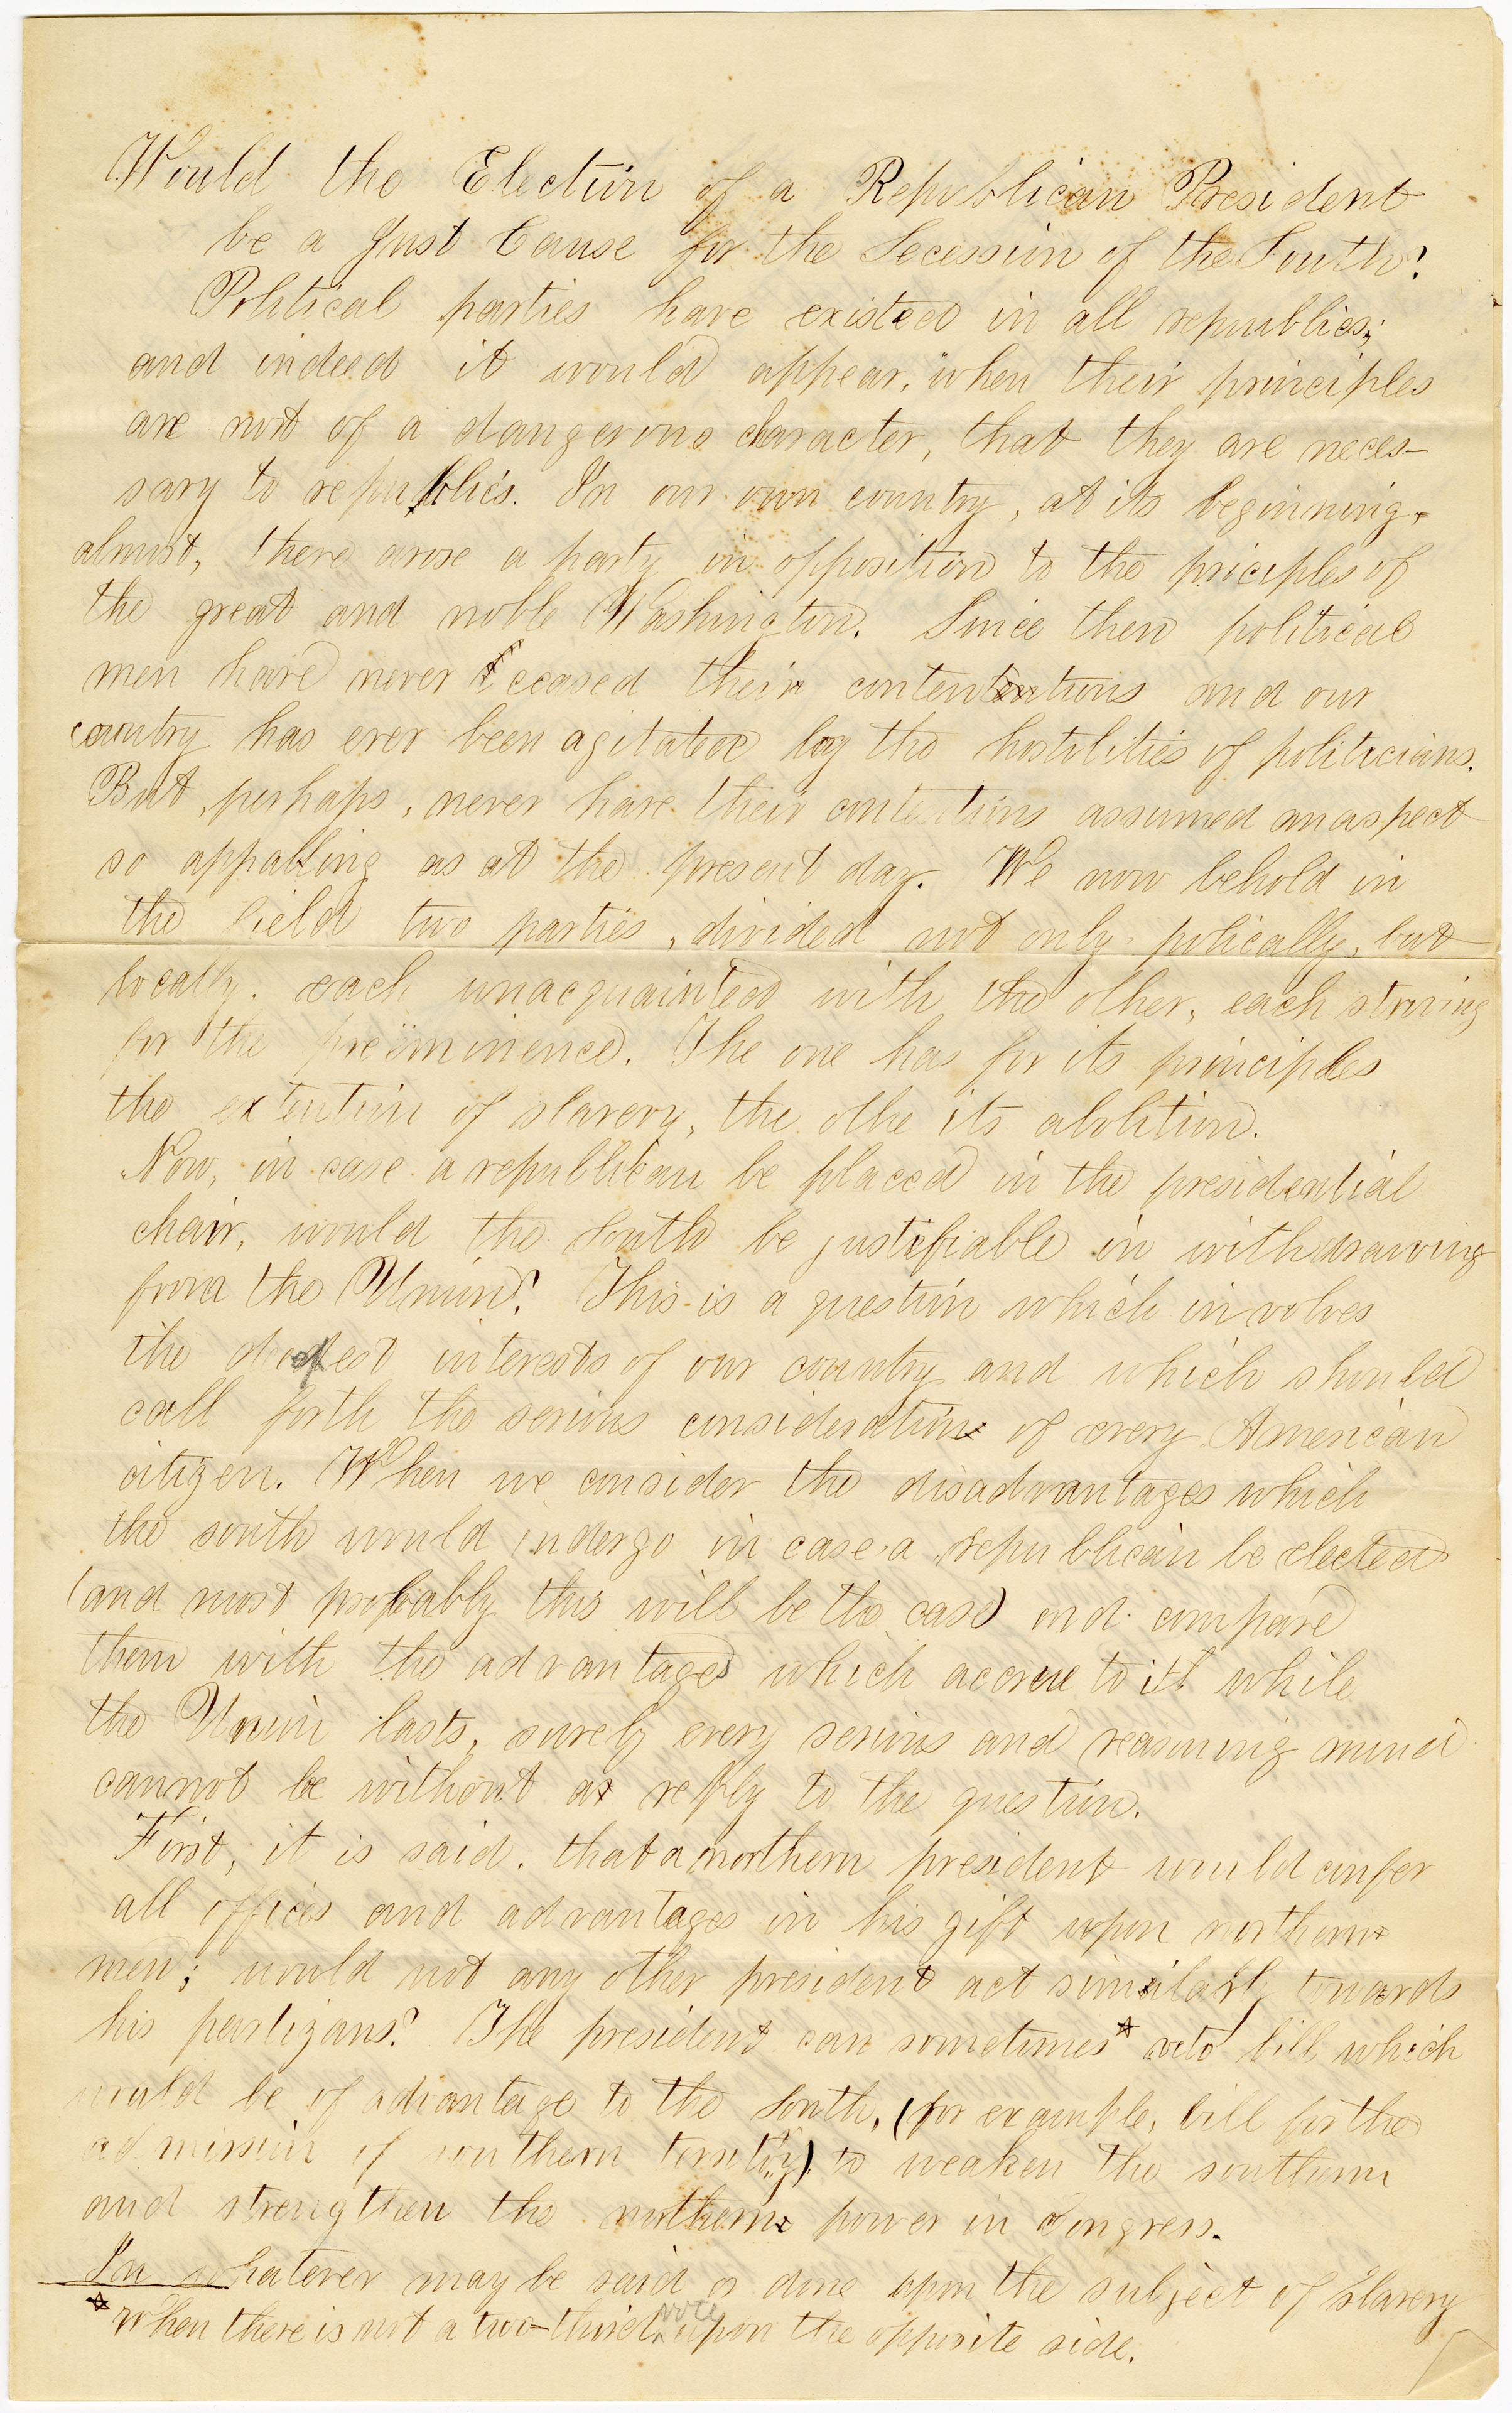 Would the Election of a Republican President
be a Just Cause for the Secession of the South?
Political parties have existed in all republics;
and indeed it would appear, when their principles
are not of a dangerous character, that they are neces-
sary to republics. In our own country, at its beginning
almost, there arose a party in opposition to the priciples of
the great and noble Washington. Since then political
men have never ceased their contentions and our
country has ever been agitated by the hostilities of politicians.
But, perhaps, never have their contentions assumed an aspect
so appalling as at the present day. We now behold in
the field two parties, divided not only polically, but
locally. each unacquainted with the other, each striving
for the preëminence. The one has for its principles
the extention of slavery, the othe its abolition.
Now, in case a republican be placed in the presidential
chair, would the South be justifiable in withdrawing
from the Union? This is a question which involves
the deepest interests of our country and which should
call forth the serious consideration of every American
citizen. When we consider the disadvantages which
the south would undergo in case a republican be elected
(and most probably this will be the case) and compare
them with the advantages which accrue to it while
the Union lasts, surely every serious and reasoning mind
cannot be without a reply to the question.
First, it is said, that a northern president would confer
all offices and advantages in his gift upon northern
men; would not any other president act similarly towards
his partizans? The president can sometimes* veto bill which
would be of advantage to the South, (for example, bill for the
admission of southern territory) to weaken the southern
and strengthen the northern power in Congress.
In whatever may be said or done upon the subject of slavery
*When there is not a two-third vote upon the opposite side.